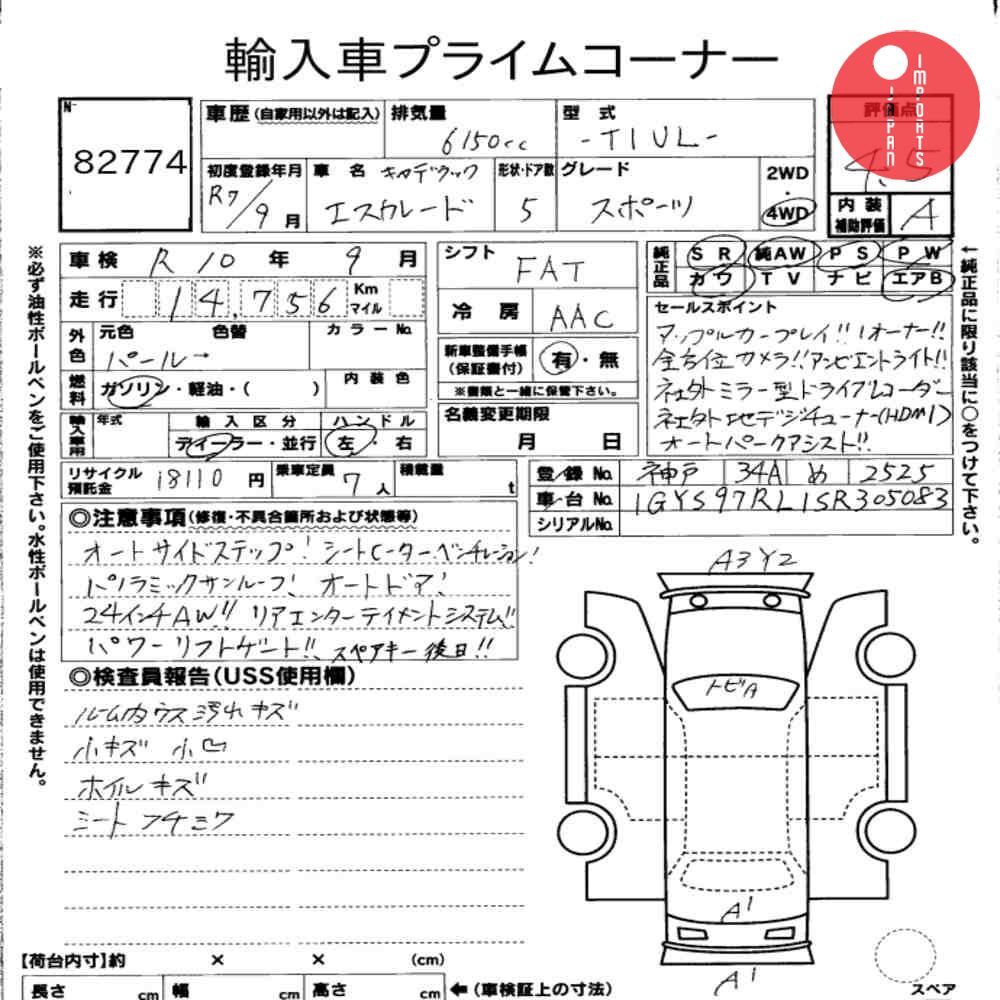 輸入車プライムコーナー
JAPAN IMPORTS
No
82774
車歴(自家用以外は記入)
排気量
6150cc
型 式
-T1UL-
評価点
4.5
初度登録年月
R7/9月
車 名
キャデラック
エスカレード
形状・ドア数
5
グレード
スポーツ
2WD
・
4WD
内装
補助評価
A
車検 R 10 年 9 月
走行 14,756 Km
マイル
シフト
FAT
冷 房
AAC
純正品
SR 純AW PS PW
カワ TV ナビ エアB
外色
元色 色替
パール
カラーNo.
燃料
ガソリン・軽油・( )
内装色
新車整備手帳
(保証書付)
有・無
※書類と一緒に保管下さい。
セールスポイント
アップルカープレイ!! 1オーナー!!
全方位カメラ!! アンビエントライト!!
社外ミラー型ドライブレコーダー
社外地デジチューナー(HDMI)
オートパークアシスト!!
輸入車用
年式
輸入区分
ディーラー・並行
ハンドル
左・右
名義変更期限
月 日
リサイクル
預託金
18110 円
乗車定員
7 人
積載量
t
登録No. 神戸 34A め 2525
車台No. 1GYS97RL1SR305083
シリアルNo.
◎注意事項(修復・不具合箇所および状態等)
オートサイドステップ! シートヒーター・ベンチレーション!
パノラミックサンルーフ! オートドア!
24インチAW!! リアエンターテイメントシステム!!
パワーリフトゲート!! スペアキー後日!!
◎検査員報告(USS使用欄)
ルーム内ウス汚れキズ
小キズ 小凹
ホイルキズ
シートフチミワ
A3 Y2
トビA
A1
A1
スペア
【荷台内寸】約 × × (cm)
長さ cm 幅 cm 高さ cm ←(車検証上の寸法)
※必ず油性ボールペンをご使用下さい。水性ボールペンは使用できません。
←純正品に限り該当に○をつけて下さい。